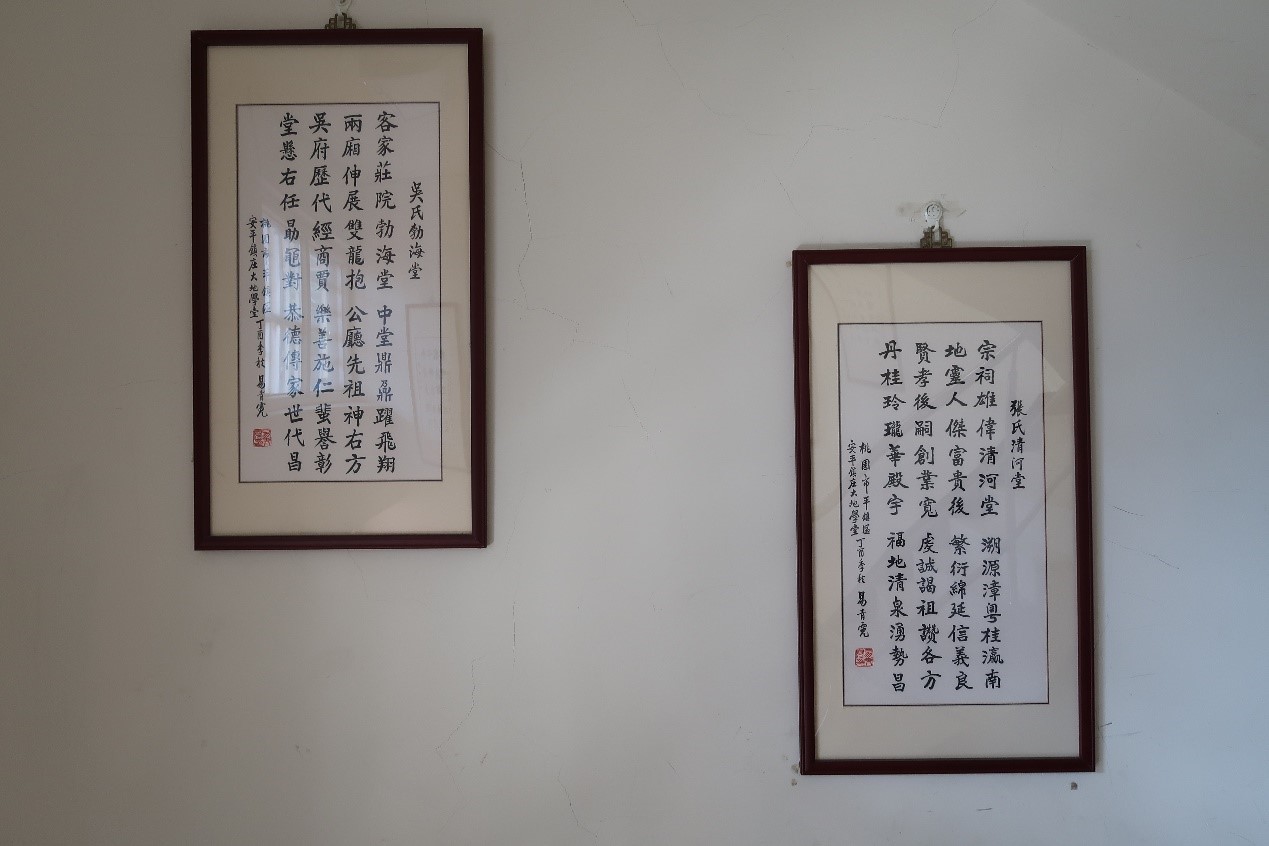 吳氏勃海堂
客家莊院勃海堂 中堂鼎鼐躍飛翔
兩廂伸展雙龍抱 公廳先祖神右方
吳府歷代經商賈 樂善施仁蜚譽彰
堂懸右任勗黽對 恭德傳家世代昌
桃園市平鎮區
安平鎮庄大地學堂 丁酉季秋 易青寬
張氏清河堂
宗祠雄偉清河堂 溯源漳粵桂瀛南
地靈人傑富貴後 繁衍綿延信義良
賢孝後嗣創業寬 虔誠謁祖讚各方
丹桂玲瓏華殿宇 福地清泉湧勢昌
桃園市平鎮區
安平鎮庄大地學堂 丁酉季秋 易青寬